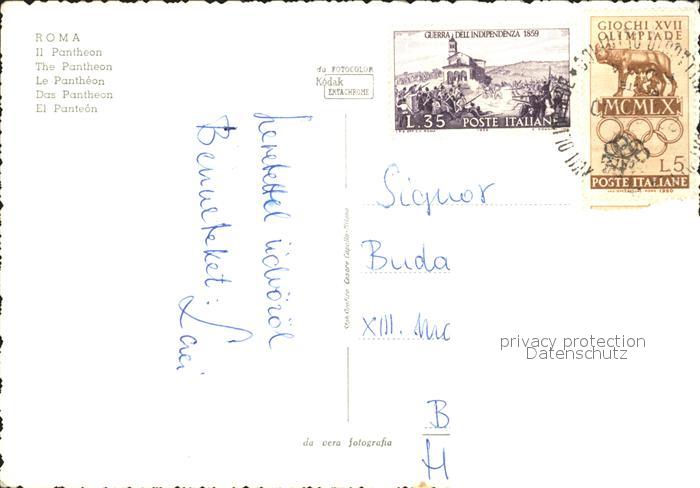 ROMA
Il Pantheon
The Pantheon
Le Panthéon
Das Pantheon
El Panteón
da FOTOCOLOR
Kodak
EKTACHROME
GUERRA DELL'INDIPENDENZA 1859
L.35 POSTE ITALIANE
GIOCHI XVII
OLIMPIADE
MCMLX
L5
POSTE ITALIANE
1960
Szeretettel üdvözöl
Benneteket: Laci
Signor
Buda
XIII.
B
H
privacy protection
Datenschutz
da vera fotografia